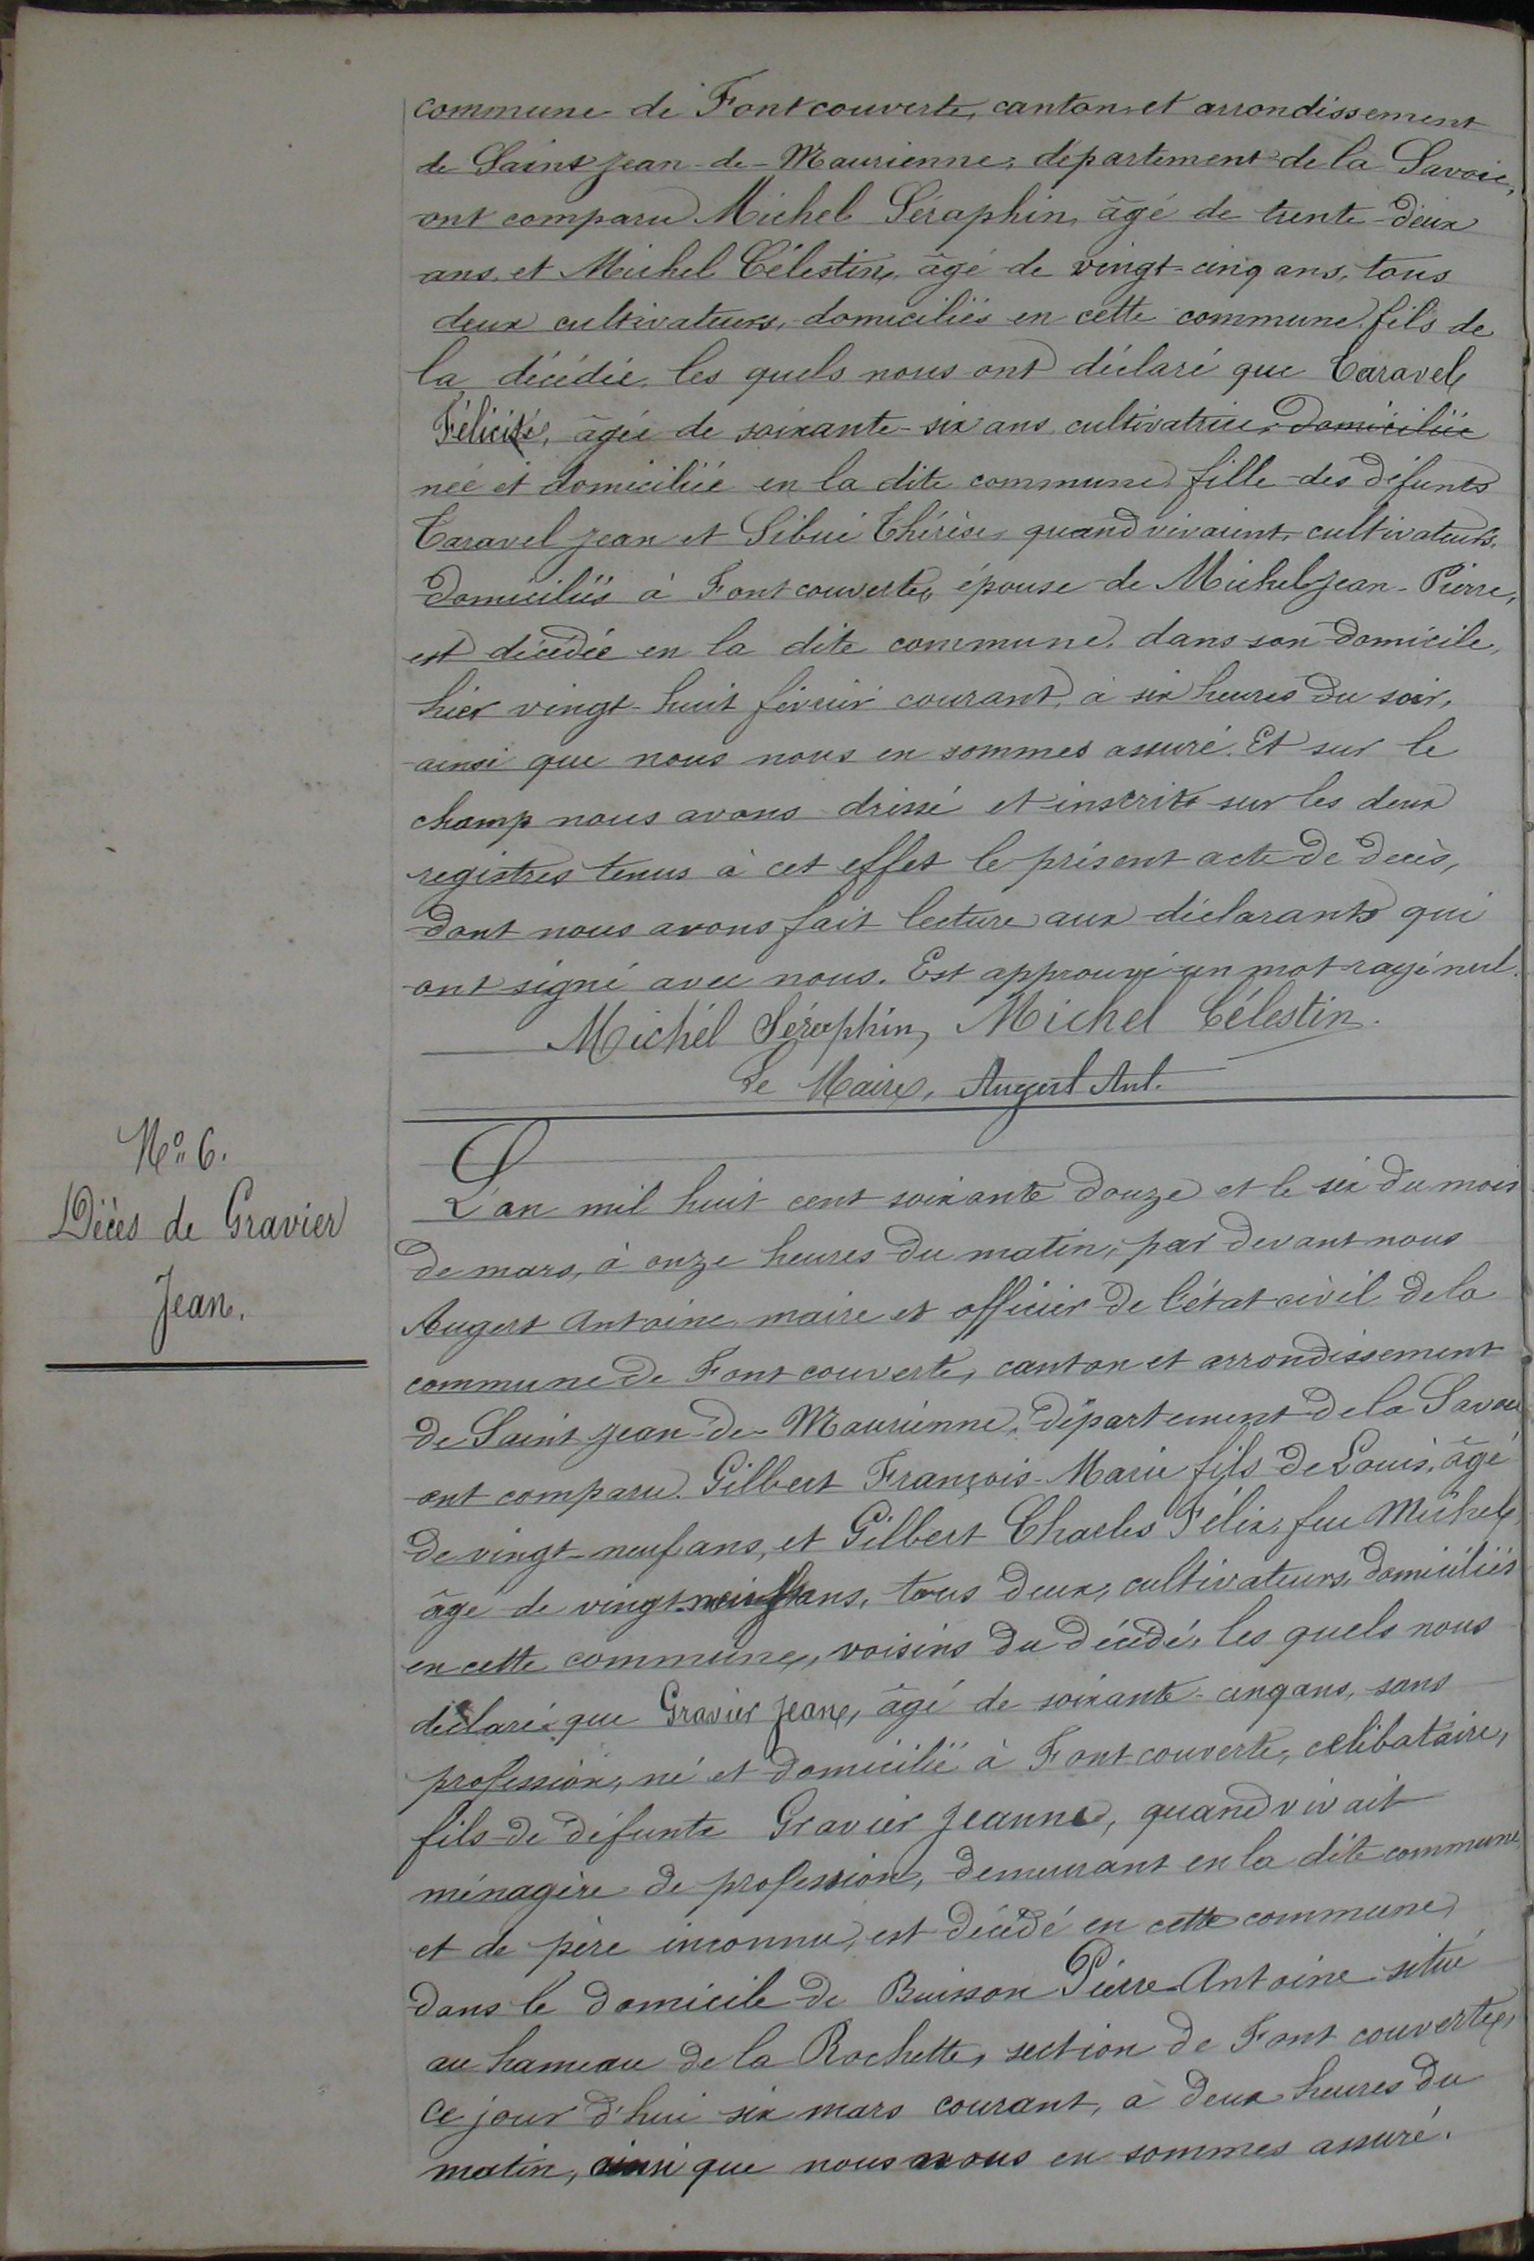 commune de Fontcouverte, canton et arrondissement
de Saint Jean-de-Maurienne, département de la Savoie,
ont comparu Michel Séraphin, âgé de trente-deux
ans et Michel Célestin, âgé de vingt-cinq ans, tous
deux cultivateurs, domiciliés en cette commune fils de
la décédée, les quels nous ont déclaré que Taravel
Félicité, âgée de soixante-six ans cultivatrice, domiciliée
née et domiciliée en la dite commune fille des défunts
Taravel Jean et Sibué Thérèse, quand vivaient, cultivateurs,
domiciliés à Fontcouverte, épouse de Michel Jean-Pierre,
est décédée en la dite commune, dans son domicile,
hier vingt-huit février courant, à six heures du soir,
ainsi que nous nous en sommes assuré. Et sur le
champ nous avons dréssé et inscrits sur les deux
registres tenus à cet effet le présent acte de decès,
dont nous avons fait lecture aux déclarants qui
ont signé avec nous. Est approuvé un mot rayé nul.
Michél Séraphin, Michel Célestin.
Le Maire, Augert Ant.
N° 6.
Décès de Gravier
Jean.
L'an mil huit cent soixante douze et le six du mois
de mars, à onze heures du matin, par devant nous
Augert Antoine maire et officier de l'état civil de la
commune de Fontcouverte, canton et arrondissement
de Saint Jean-de-Maurienne, département de la Savoie
ont comparu Gilbert François-Marie fils de Louis, âgé
de vingt-neuf ans, et Gilbert Charles Félix, feu Michel,
âgé de vingt-neuf ans, tous deux, cultivateurs, domiciliés
en cette commune, voisins du décédé, les quels nous
déclaré que Gravier Jean, âgé de soixante-cinq ans, sans
profession, né et domicilié à Fontcouverte, celibataire,
fils de défunte Gravier Jeanne, quand vivait
ménagère de profession, demeurant en la dite commune,
et de père inconnu, est décédé en cette commune,
dans le domicile de Buisson Pierre-Antoine situé
au hameau de la Rochette, section de Font couverte,
ce jour d'hui six mars courant, à deux heures du
matin, ainsi que nous nous en sommes assuré.